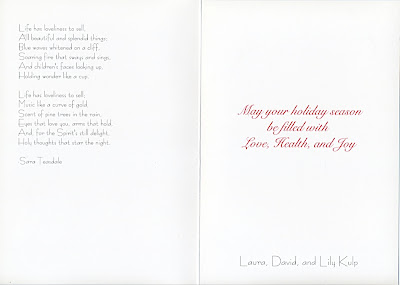 Life has loveliness to sell,
All beautiful and splendid things,
Blue waves whitened on a cliff,
Soaring fire that sways and sings,
And children's faces looking up,
Holding wonder like a cup.
Life has loveliness to sell,
Music like a curve of gold,
Scent of pine trees in the rain,
Eyes that love you, arms that hold,
And for the Spirit's still delight,
Holy thoughts that star the night.
Sara Teasdale
May your holiday season
be filled with
Love, Health, and Joy
Laura, David, and Lily Kulp